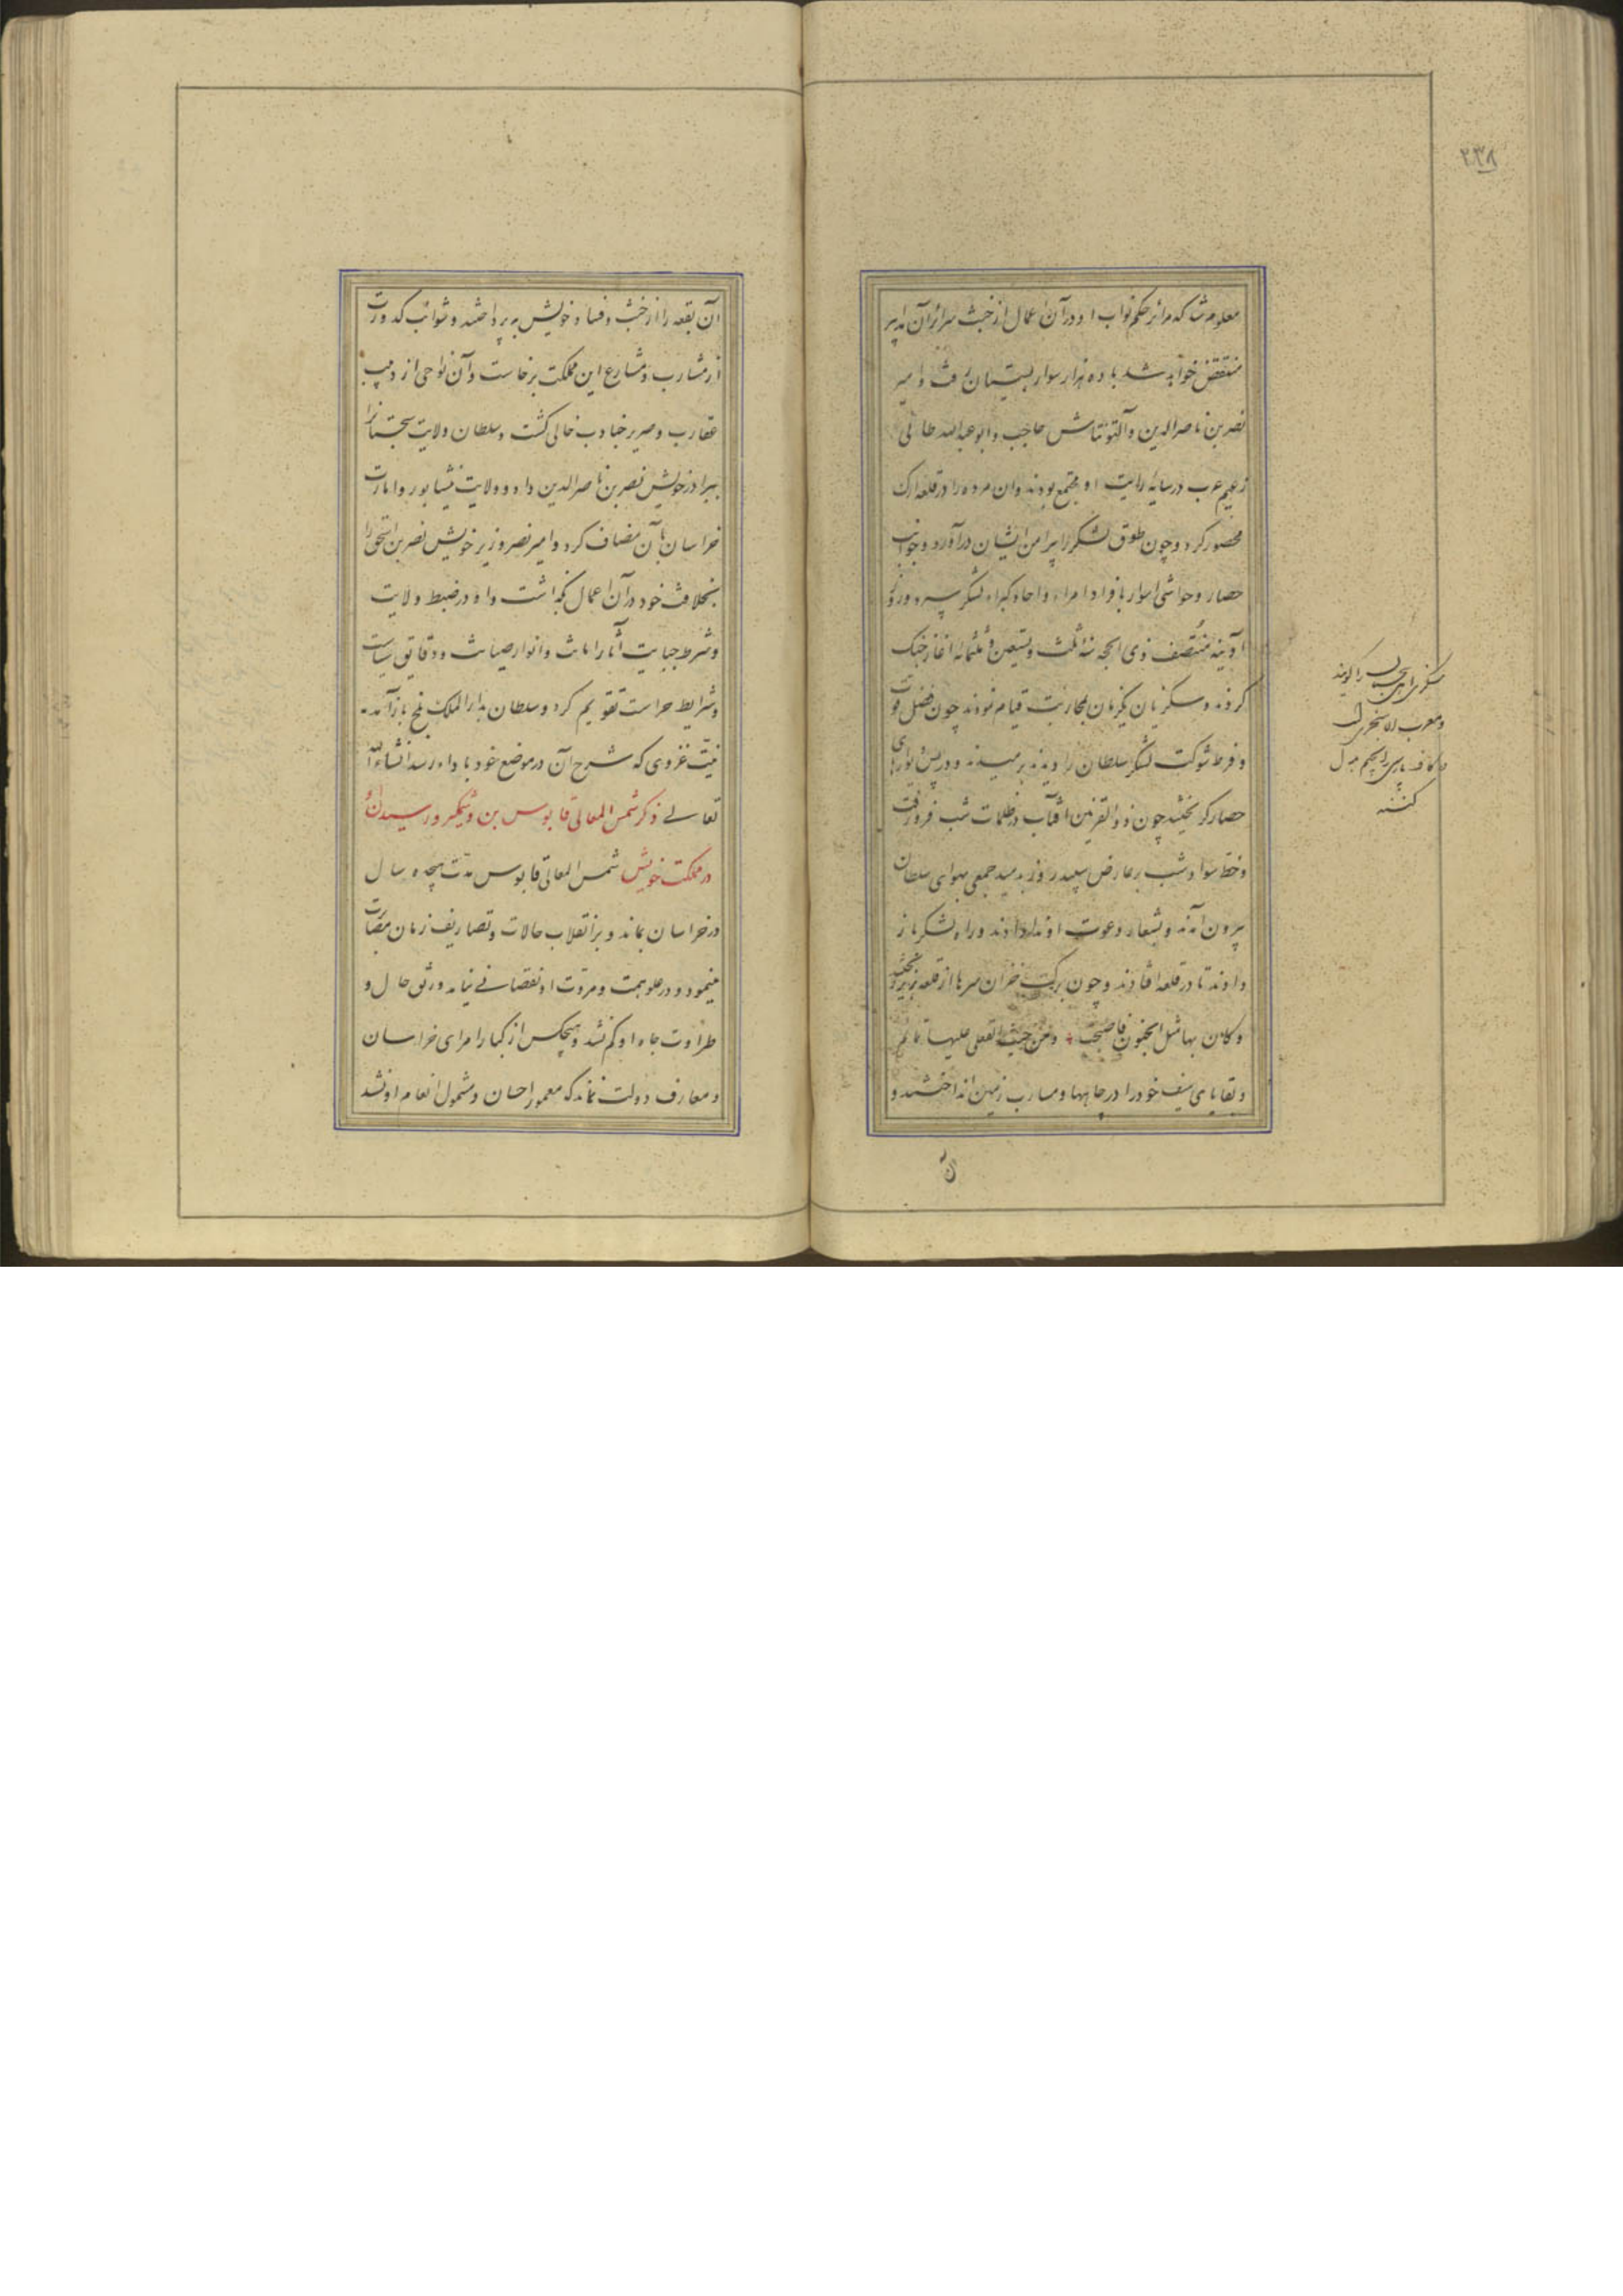 ۲۳۸
معلوم شد که مرائر حکم نواب او در آن اعمال از خبث سرائر آن مدابیر
منتقض خواهد شد با ده هزار سوار بسیستان رفت و امیر
نصر بن ناصرالدین و آلتونتاش حاجب و ابو عبدالله طائی
زعیم عرب در سایهٔ رایت او مجتمع بودند و ان مرده را در قلعه ارک
محصور کرد و چون طوق لشکر را پیرامن ایشان درآورد و جوانب
حصار و حواشی اسوار بافراد امراء و احاد کبراء لشکر سپرد و روز
آدینه منتصف ذی الحجه سنه ثلث و تسعین و ثلثمائه اغاز جنک
کردند و سکزیان یکزمان بمحاربت قیام نمودند چون فضل قوت
و فرط شوکت لشکر سلطان را دیدند برمیدند و در پس دیوارهای
حصار کریختند چون ذو القرنین افتاب در ظلمات شب فرو رفت
و خط سواد شب بر عارض سپید روز بدمید جمعی بهوای سلطان
بیرون آمدند و بشعار دعوت او ندا دادند و راه لشکر باز
دادند تا در قلعه افتادند و چون برک خزان سرها از قلعه بزیر ریختند
و کان بها مثل الجنون فاصبحت و من جثث القتلی علیها تمائم
و بقایای سیف خود را در چاهها و مسارب زمین انداختند و
سکزی اهل سجستان را کویند
و معرب ان سجزی است
که کاف پارسی را بجیم بدل
کنند
آن
آن بقعه را از خبث و فساد خویش بپرداختند و شوائب کدورت
از مشارب و مشارع این مملکت برخاست و آن نواحی از دبیب
عقارب و صریر جنادب خالی کشت و سلطان ولایت سجستانرا
ببرادر خویش نصر بن ناصرالدین داد و ولایت نیشابور و امارت
خراسان بآن مضاف کرد و امیر نصر وزیر خویش نصر بن اسحق را
بخلافت خود در آن اعمال بگماشت و او در ضبط ولایت
و شرط جبایت آثار امانت و انوار صیانت و دقایق سیاست
و شرایط حراست تقویم کرد و سلطان بدار الملک بلخ باز آمد
بنیت غزوی که شرح آن در موضع خود باداء رسد انشاء الله
تعالی ذکر شمس المعالی قابوس بن وشمکیر و رسیدن او
در مملکت خویش شمس المعالی قابوس مدت هیجده سال
در خراسان بماند و بر انقلاب حالات و تصاریف زمان مصابرت
مینمود و در علو همت و مروت او نقصانی نیامد و رونق حال و
طراوت جاه او کم نشد و هیچکس از کبار امرای خراسان
و معارف دولت نماند که مغمور احسان و مشمول انعام او نشد